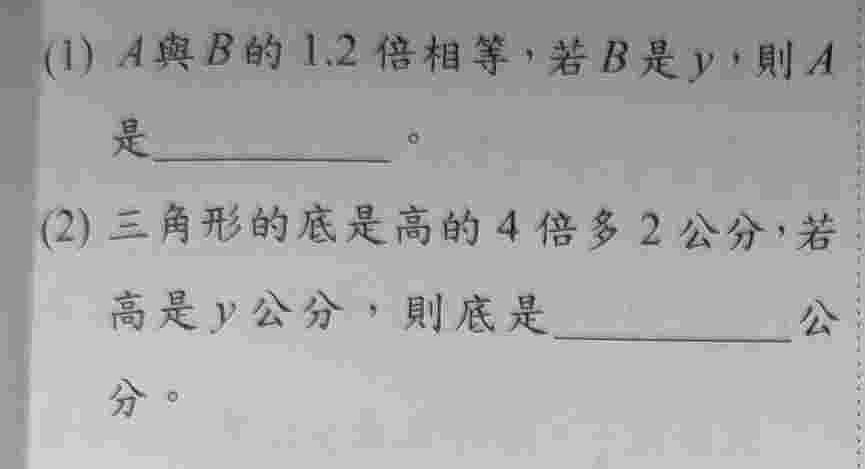 (1) A與B的1.2倍相等,若B是y,則A
是＿＿＿＿＿＿。
(2) 三角形的底是高的4倍多2公分,若
高是y公分,則底是＿＿＿＿＿＿公
分。